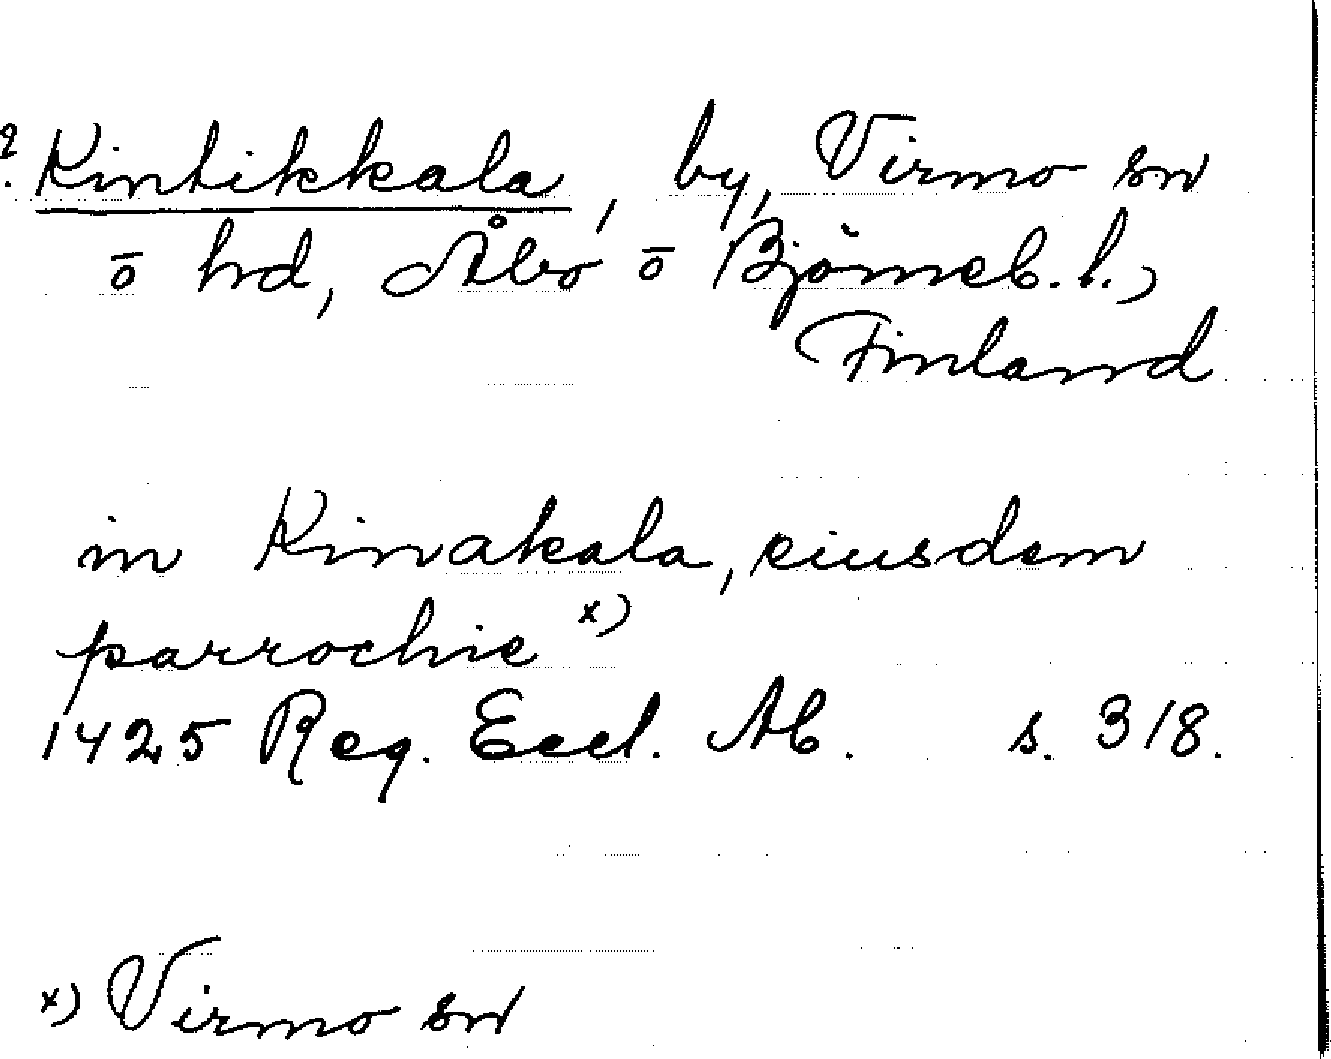 ?. Kintikkala, by, Virmo sn
o hd, Åbo o Björneb. l.,
Finland
in Kinakala, eiusdem
parrochie x)
1425 Reg. Eccl. Ab. s. 318.
x) Virmo sn